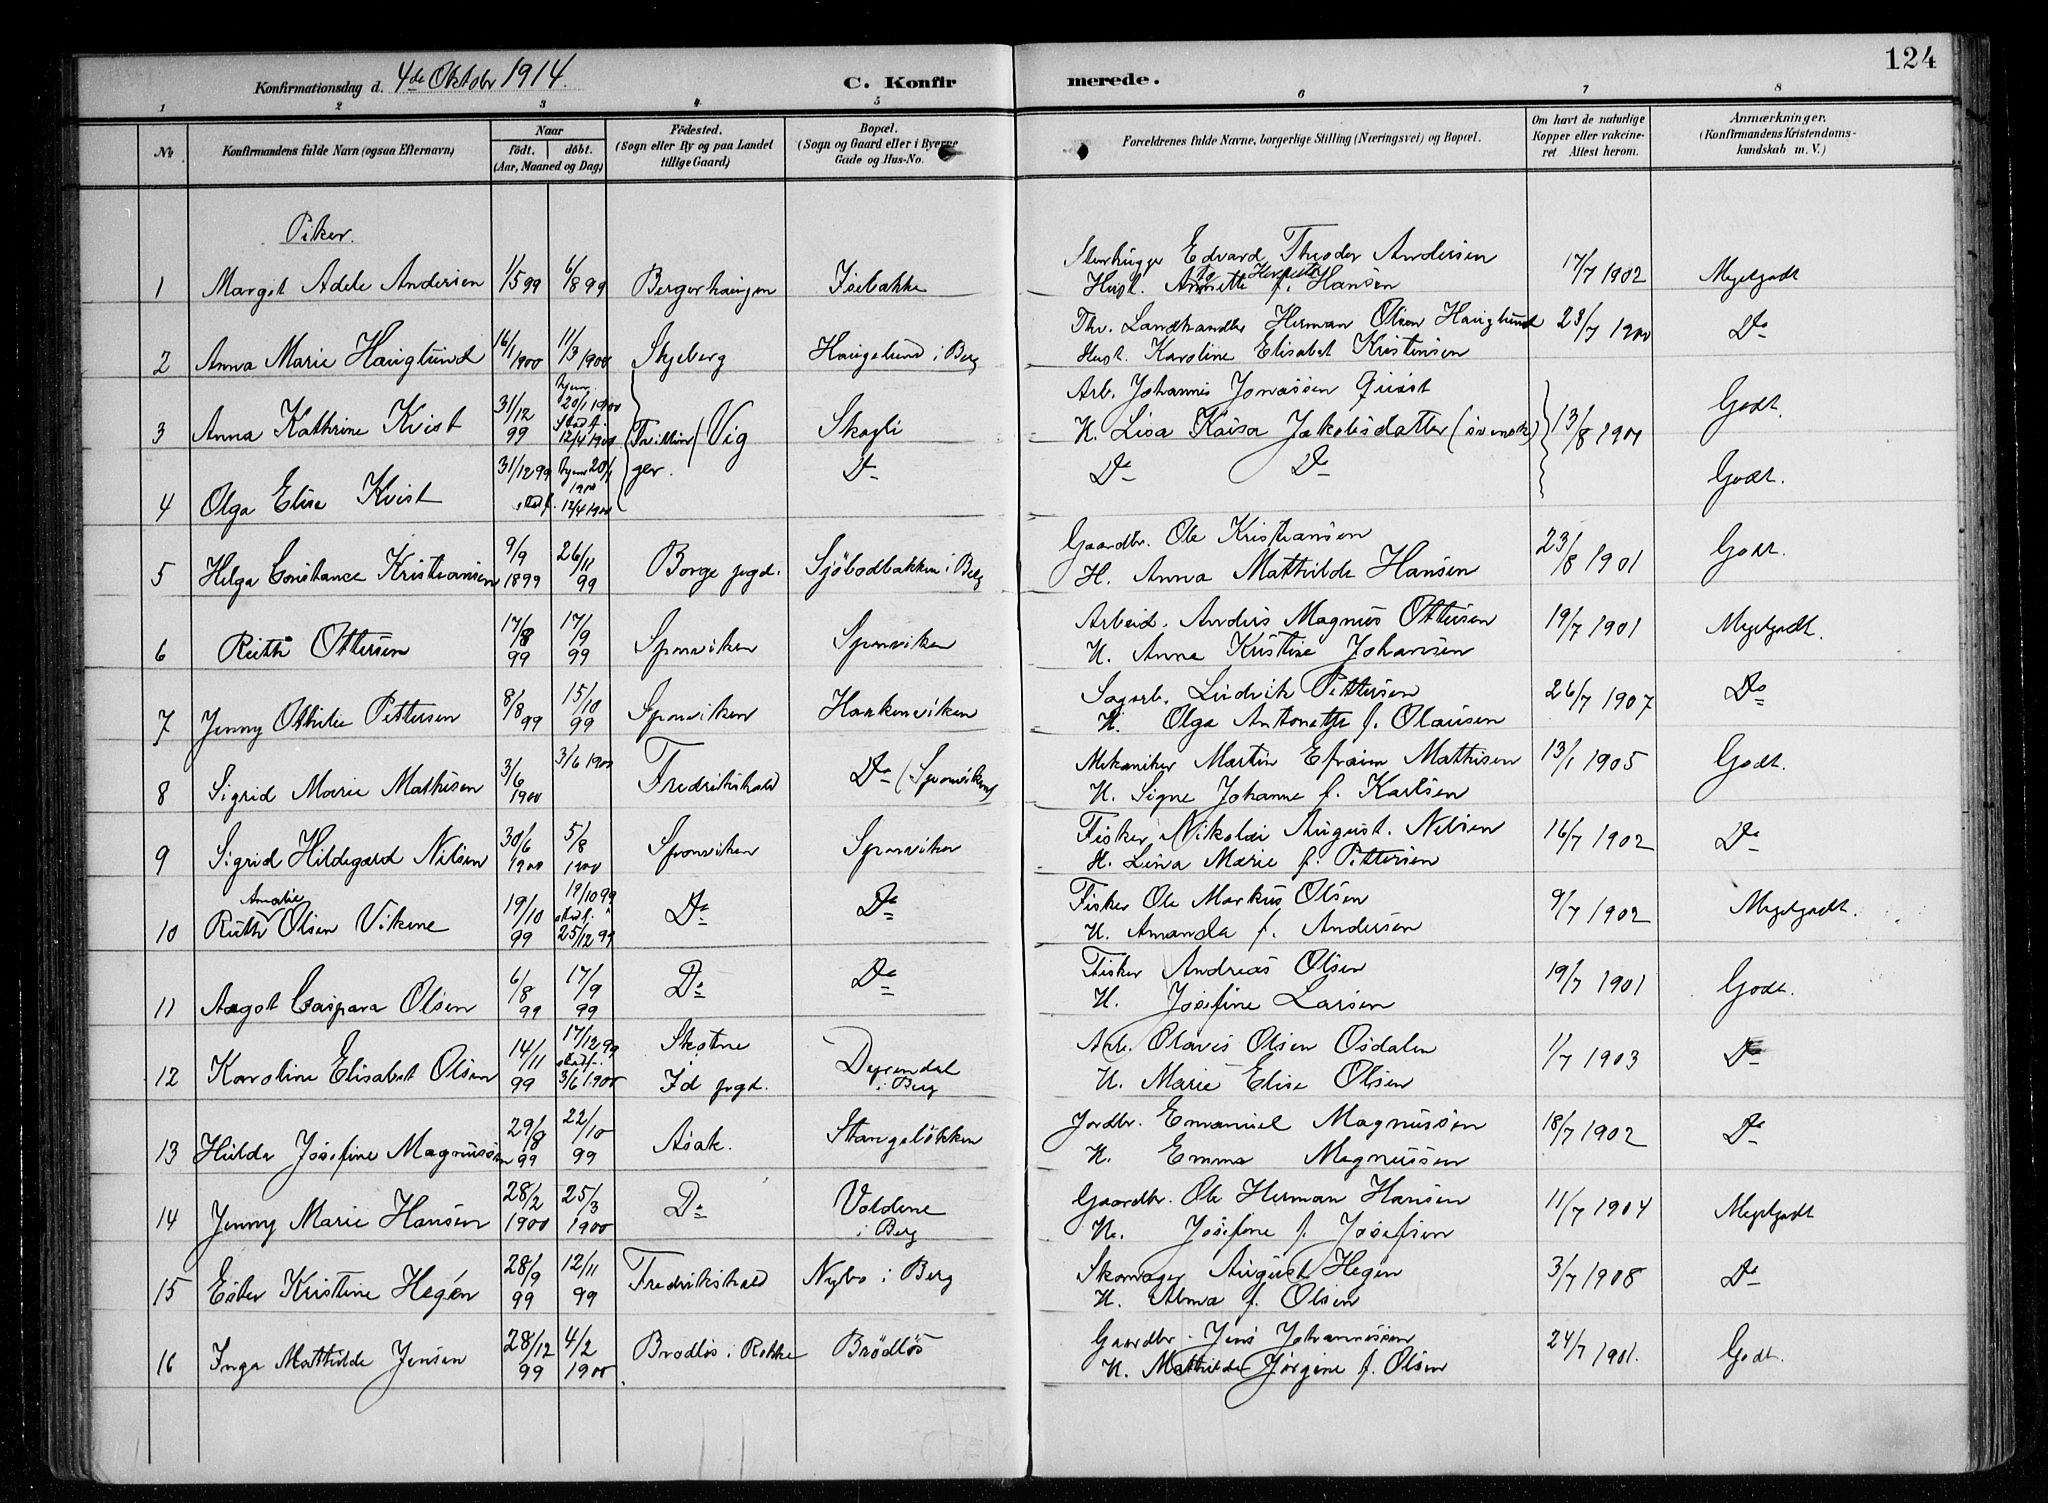 124
Konfirmationsdag d. 4de Oktober 1914. C. Konfirmerede.
1 2 3 4 5 6 7 8
No
Konfirmandens fulde Navn (ogsaa Efternavn)
Naar
födt. döbt.
(Aar, Maaned og Dag)
Födested.
(Sogn eller By og paa Landet
tillige Gaard)
Bopæl.
(Sogn og Gaard eller i Byerne
Gade og Hus-No.
Forældrenes fulde Navne, borgerlige Stilling (Næringsvei) og Bopæl.
Om havt de naturlige
Kopper eller vakcine-
ret Attest herom.
Anmærkninger.
(Konfirmandens Kristendoms-
kundskab m. V.)
Piker.
1 Margit Adele Andersen 1/5 99 6/8 99 Isebakke
Stenhugger Edvard Theodor Andersen
Hust. Annette f. Hansen 17/7 1902 Megetgodt
2 Anna Marie Hauglund 16/1 1900 11/3 1900 Skjeberg Haugelund i Berg
Thv. Landhandler Herman Olsen Hauglund
Hust. Karoline Elisabet Kristensen 23/7 1900 Do
3 Anna Kathrine Kvist 31/12 99 hjem. 20/1 1900 stadf. 12/4 1900 Vig Skogli
Arb. Johannes Jonassen Quist
H. Lisa Kaisa Jakobsdatter (svensk) 13/8 1901 Godt.
4 Olga Elise Kvist 31/12 99 hjem 20/1 1900 stadf. 12/4 1900 Do
Do Do Godt.
5 Helga Constance Kristiansen 9/9 1899 26/11 99 Borge prgd. Sjöbodbakken i Berg
Gaardbr. Ole Kristiansen
H. Anna Mathilde Hansen 23/8 1901 Godt.
6 Ruth Ottersen 17/8 99 17/9 99 Sponviken Sponviken
Arbeid. Anders Magnus Ottersen
H. Anna Kristine Johansen 19/7 1901 Megetgodt.
7 Jenny Othilie Pettersen 8/8 99 15/10 99 Sponviken Hankenviken
Sagarb. Ludvik Pettersen
H. Olga Antonette f. Olausen 26/7 1907 Do
8 Sigrid Marie Mathisen 3/6 1900 3/6 1900 Fredrikshald Do (Sponviken)
Mekaniker Martin Efraim Mathisen
H. Signe Johanne f. Karlsen 13/1 1905 Godt.
9 Sigrid Hildegard Nilsen 30/6 1900 5/8 1900 Sponviken Sponviken
Fisker Nikolai August Nilsen
H. Lina Marie f. Pettersen 16/7 1902 Do
10 Ruth Amalie Olsen Vikene 19/10 99 19/10 99 stadf. 25/12 99 Do Do
Fisker Ole Markus Olsen
H. Amanda f. Andersen 9/7 1902 Megetgodt.
11 Aagot Caspara Olsen 6/8 99 17/9 99 Do Do
Fisker Andreas Olsen
H. Josefine Larsen 19/7 1901 Godt.
12 Karoline Elisabet Olsen 14/11 99 17/12 99 stadf. 3/6 1900 Skotne Id prgd. Dyrendal i Berg
Arb. Olaves Olsen Osdalen
H. Marie Elise Olsen 1/7 1903 Do
13 Hilda Josefine Magnussen 29/8 99 22/10 99 Asak. Stangelökken
Jordbr. Emanuel Magnussen
H. Emma Magnussen 18/7 1902 Do
14 Jenny Marie Hansen 28/2 1900 25/3 1900 Do Voldene i Berg
Gaardbr. Ole Herman Hansen
H. Josefine f. Josefsen 11/7 1904 Megetgodt
15 Ester Kristine Hegén 28/9 99 12/11 99 Fredrikshald Nybo i Berg
Skomager August Hegen
H. Alma f. Olsen 3/7 1908 Do
16 Inga Mathilde Jensen 28/12 99 4/2 1900 Brödlös i Rokke Brödlös
Gaardbr. Jens Johannessen
H. Mathilde Jörgine f. Olsen 24/7 1901. Godt.